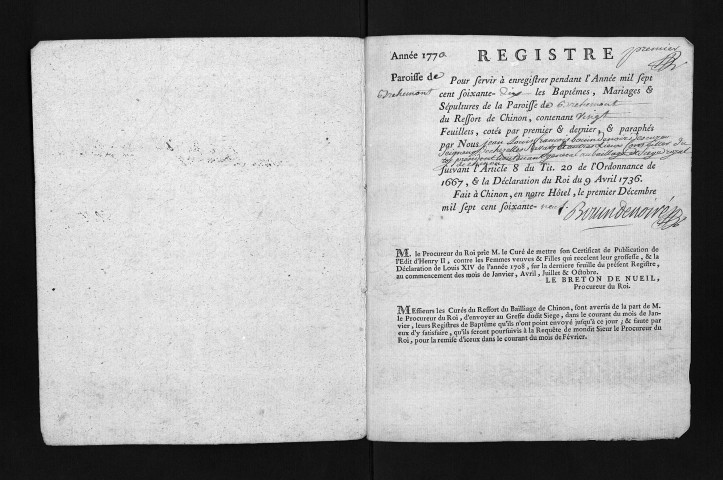 Année 1770 REGISTRE premier
Paroisse de
Brehemont
Pour servir à enregistrer pendant l'Année mil sept
cent soixante-dix les Baptêmes, Mariages &
Sépultures de la Paroisse de Brehemont
du Ressort de Chinon, contenant vingt
Feuillets, cotés par premier & dernier, & paraphés
par Nous Jean Louis François
Seigneur
suivant l'Article 8 du Tit. 20 de l'Ordonnance de
1667, & la Déclaration du Roi du 9 Avril 1736.
Fait à Chinon, en notre Hôtel, le premier Décembre
mil sept cent soixante-neuf.
M. le Procureur du Roi prie M. le Curé de mettre son Certificat de Publication de
l'Edit d'Henry II, contre les Femmes veuves & Filles qui recelent leur grossesse, & la
Déclaration de Louis XIV de l'année 1708, sur la derniere feuille du présent Registre,
au commencement des mois de Janvier, Avril, Juillet & Octobre.
LE BRETON DE NUEIL,
Procureur du Roi.
MEssieurs les Curés du Ressort du Bailliage de Chinon, sont avertis de la part de M.
le Procureur du Roi, d'envoyer au Greffe dudit Siege, dans le courant du mois de Jan-
vier, leurs Registres de Baptême qu'ils n'ont point envoyé jusqu'à ce jour; & faute par
eux d'y satisfaire, qu'ils seront poursuivis à la Requête de mondit Sieur le Procureur du
Roi, pour la remise d'iceux dans le courant du mois de Février.